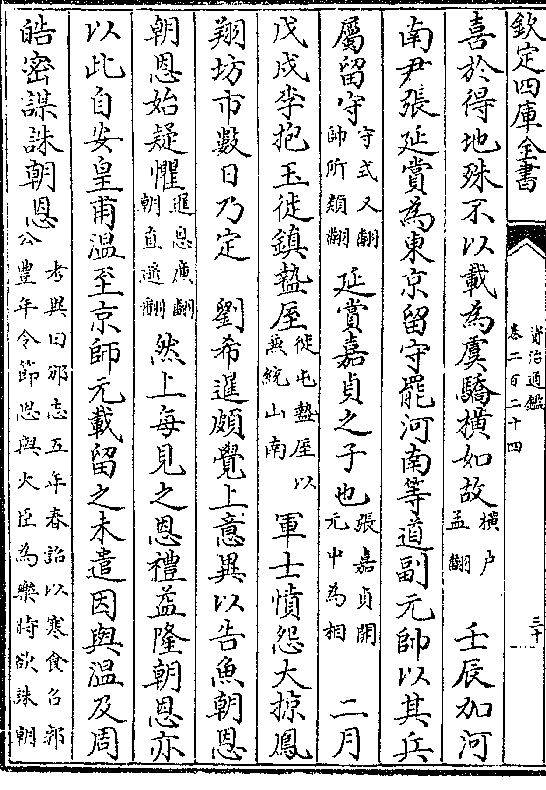 欽定四庫全書
資治通鑑
卷二百二十四
三十
喜於得地殊不以載為虞驕橫如故橫户孟翻壬辰加河
南尹張延賞為東京留守罷河南等道副元帥以其兵
屬留守守式又翻帥所類翻延賞嘉貞之子也張嘉貞開元中為相二月
戊戌李抱玉徙鎮盩厔徙屯盩厔以兼統山南軍士憤怨大掠鳳
翔坊市數日乃定 劉希暹頗覺上意異以告魚朝恩
朝恩始疑懼暹息廉翻朝直遥翻然上每見之恩禮益隆朝恩亦
以此自安皇甫溫至京師元載留之未遣因與溫及周
皓密謀誅朝恩考異曰邠志五年春詔以寒食召郭公豐年令節思與大臣為樂時欲誅朝